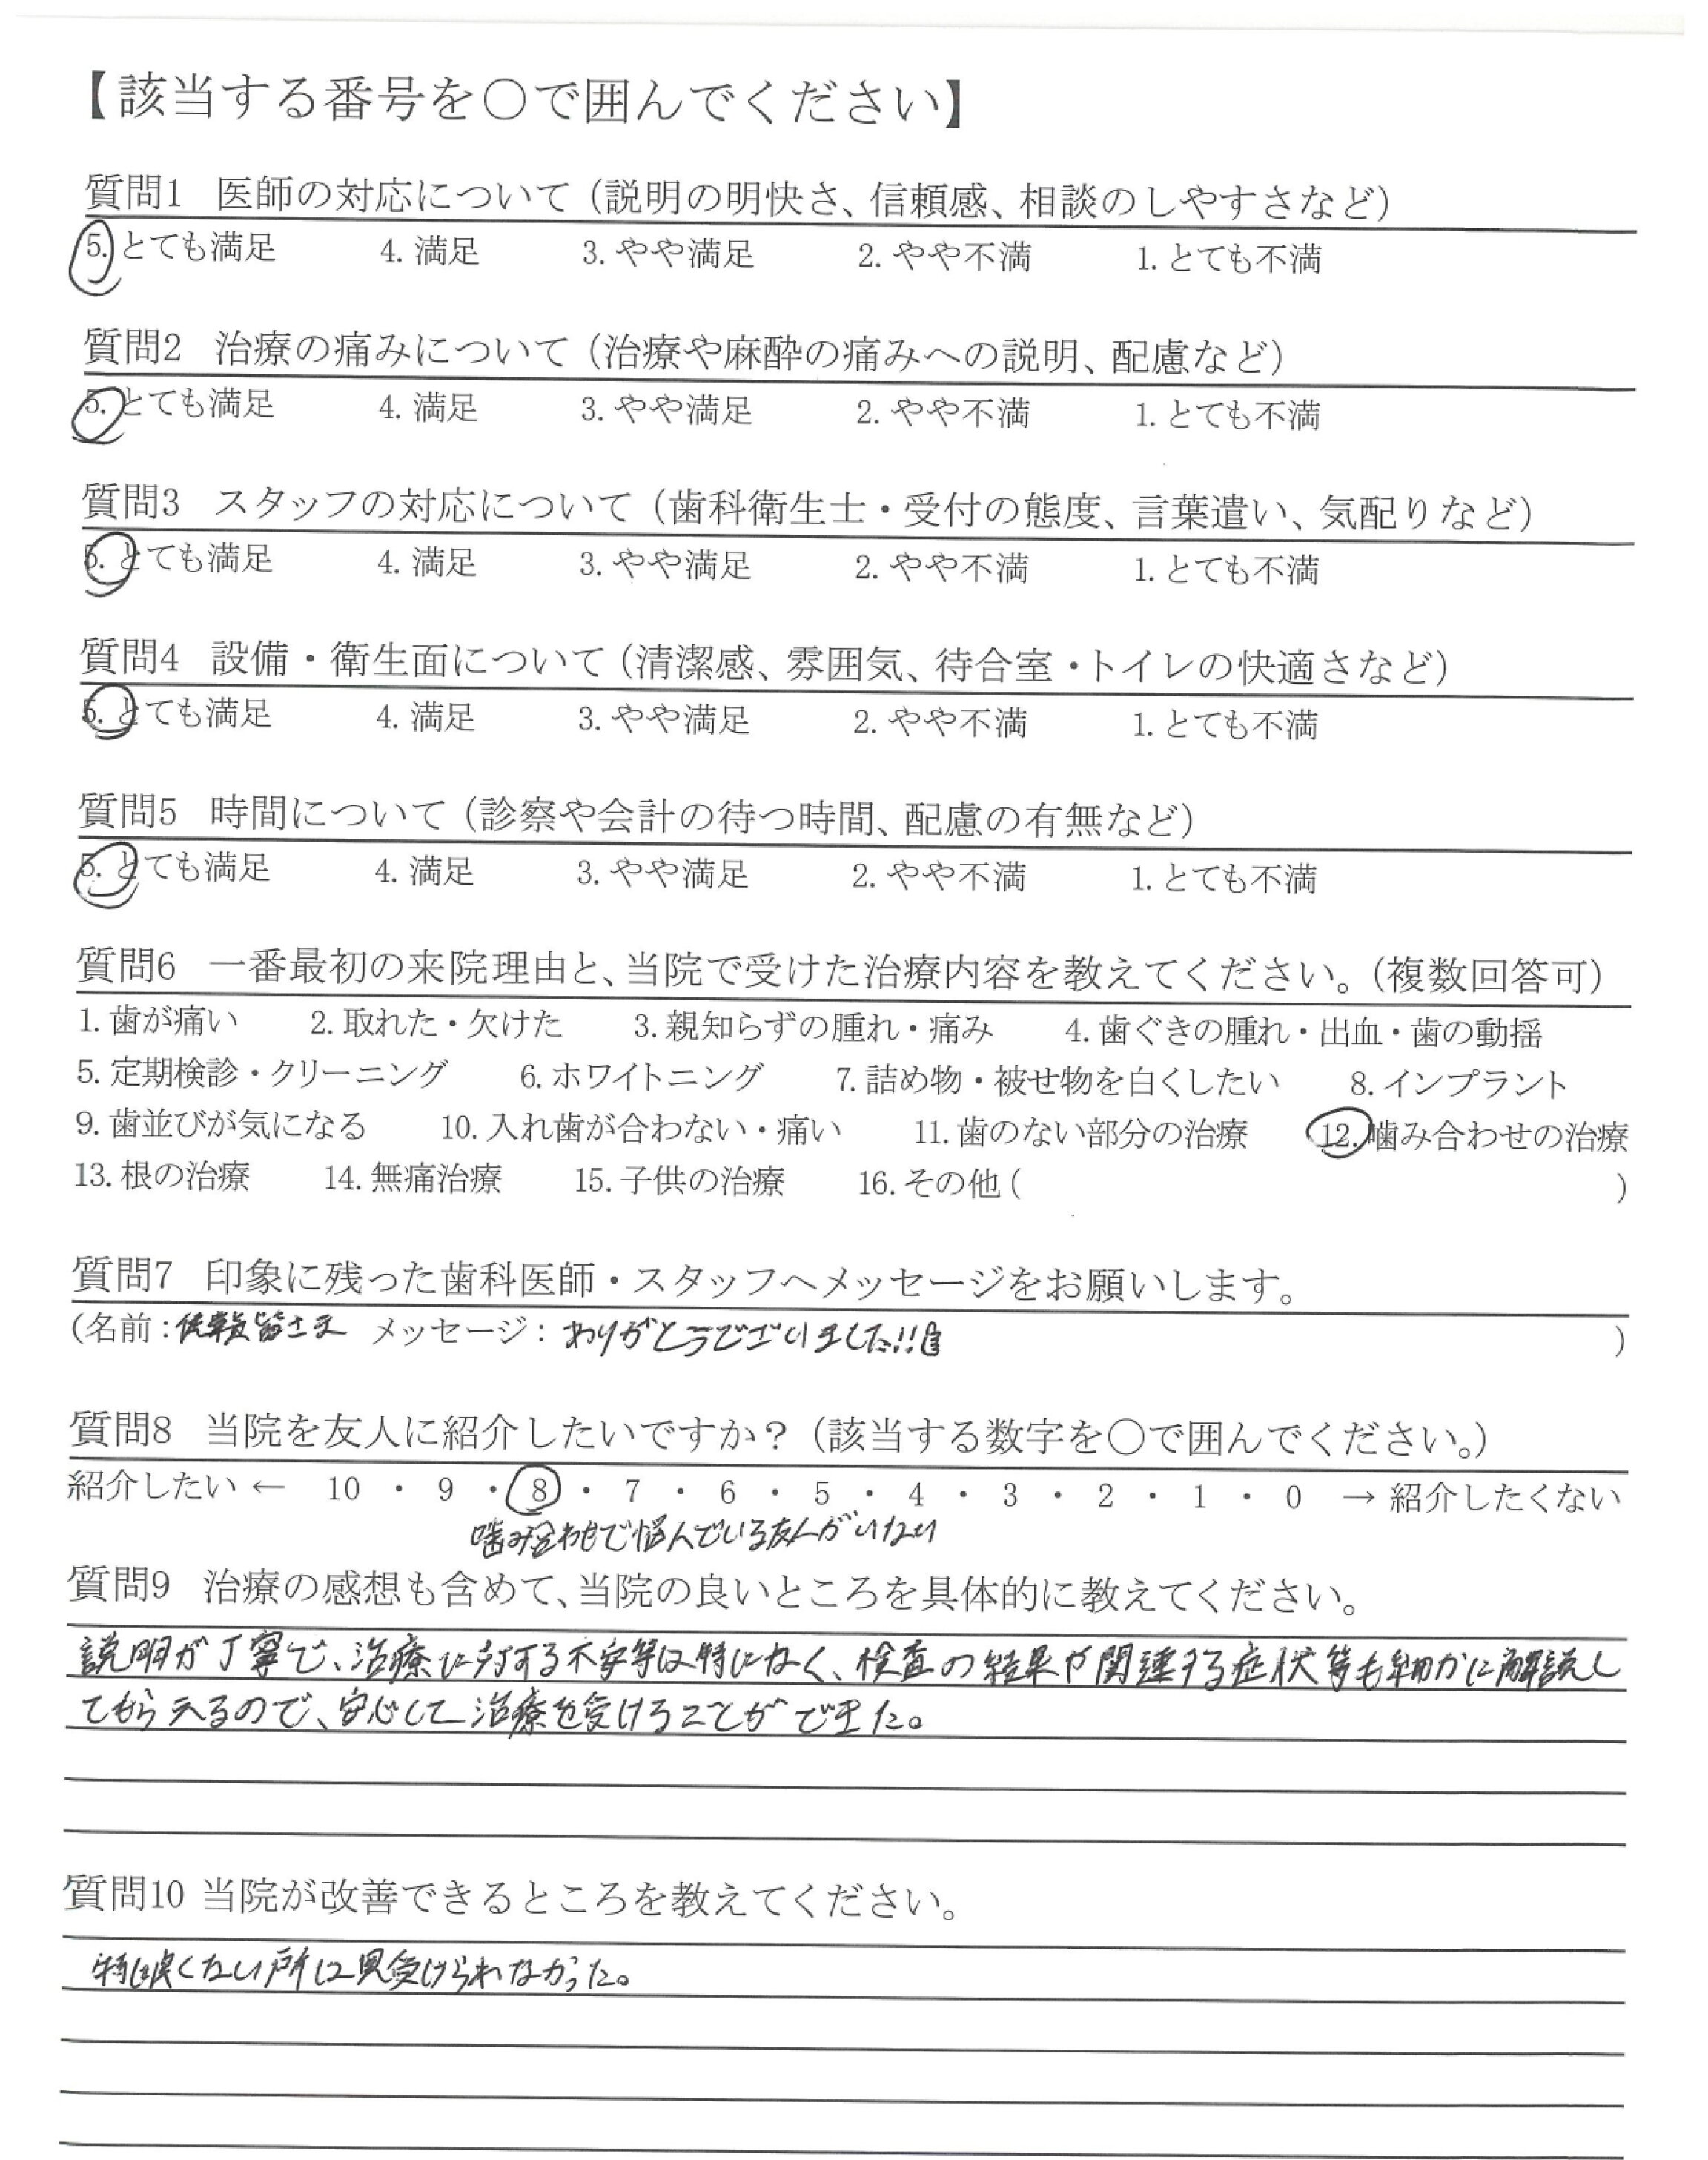 【該当する番号を〇で囲んでください】
質問1 医師の対応について（説明の明快さ、信頼感、相談のしやすさなど）
5. とても満足 4. 満足 3. やや満足 2. やや不満 1. とても不満
質問2 治療の痛みについて（治療や麻酔の痛みへの説明、配慮など）
5. とても満足 4. 満足 3. やや満足 2. やや不満 1. とても不満
質問3 スタッフの対応について（歯科衛生士・受付の態度、言葉遣い、気配りなど）
5. とても満足 4. 満足 3. やや満足 2. やや不満 1. とても不満
質問4 設備・衛生面について（清潔感、雰囲気、待合室・トイレの快適さなど）
5. とても満足 4. 満足 3. やや満足 2. やや不満 1. とても不満
質問5 時間について（診察や会計の待つ時間、配慮の有無など）
5. とても満足 4. 満足 3. やや満足 2. やや不満 1. とても不満
質問6 一番最初の来院理由と、当院で受けた治療内容を教えてください。（複数回答可）
1. 歯が痛い 2. 取れた・欠けた 3. 親知らずの腫れ・痛み 4. 歯ぐきの腫れ・出血・歯の動揺
5. 定期検診・クリーニング 6. ホワイトニング 7. 詰め物・被せ物を白くしたい 8. インプラント
9. 歯並びが気になる 10. 入れ歯が合わない・痛い 11. 歯のない部分の治療 12. 噛み合わせの治療
13. 根の治療 14. 無痛治療 15. 子供の治療 16. その他 ( )
質問7 印象に残った歯科医師・スタッフへメッセージをお願いします。
(名前： 皆さま メッセージ： ありがとうございました!! )
質問8 当院を友人に紹介したいですか？（該当する数字を〇で囲んでください。）
紹介したい ← 10 ・ 9 ・ 8 ・ 7 ・ 6 ・ 5 ・ 4 ・ 3 ・ 2 ・ 1 ・ 0 → 紹介したくない
噛み合わせで悩んでいる友人がいない
質問9 治療の感想も含めて、当院の良いところを具体的に教えてください。
説明が丁寧で、治療に対する不安等は特になく、検査の結果や関連する症状等も細かに解説し
てもらえるので、安心して治療を受けることができた。
質問10 当院が改善できるところを教えてください。
特に良くない所は見受けられなかった。